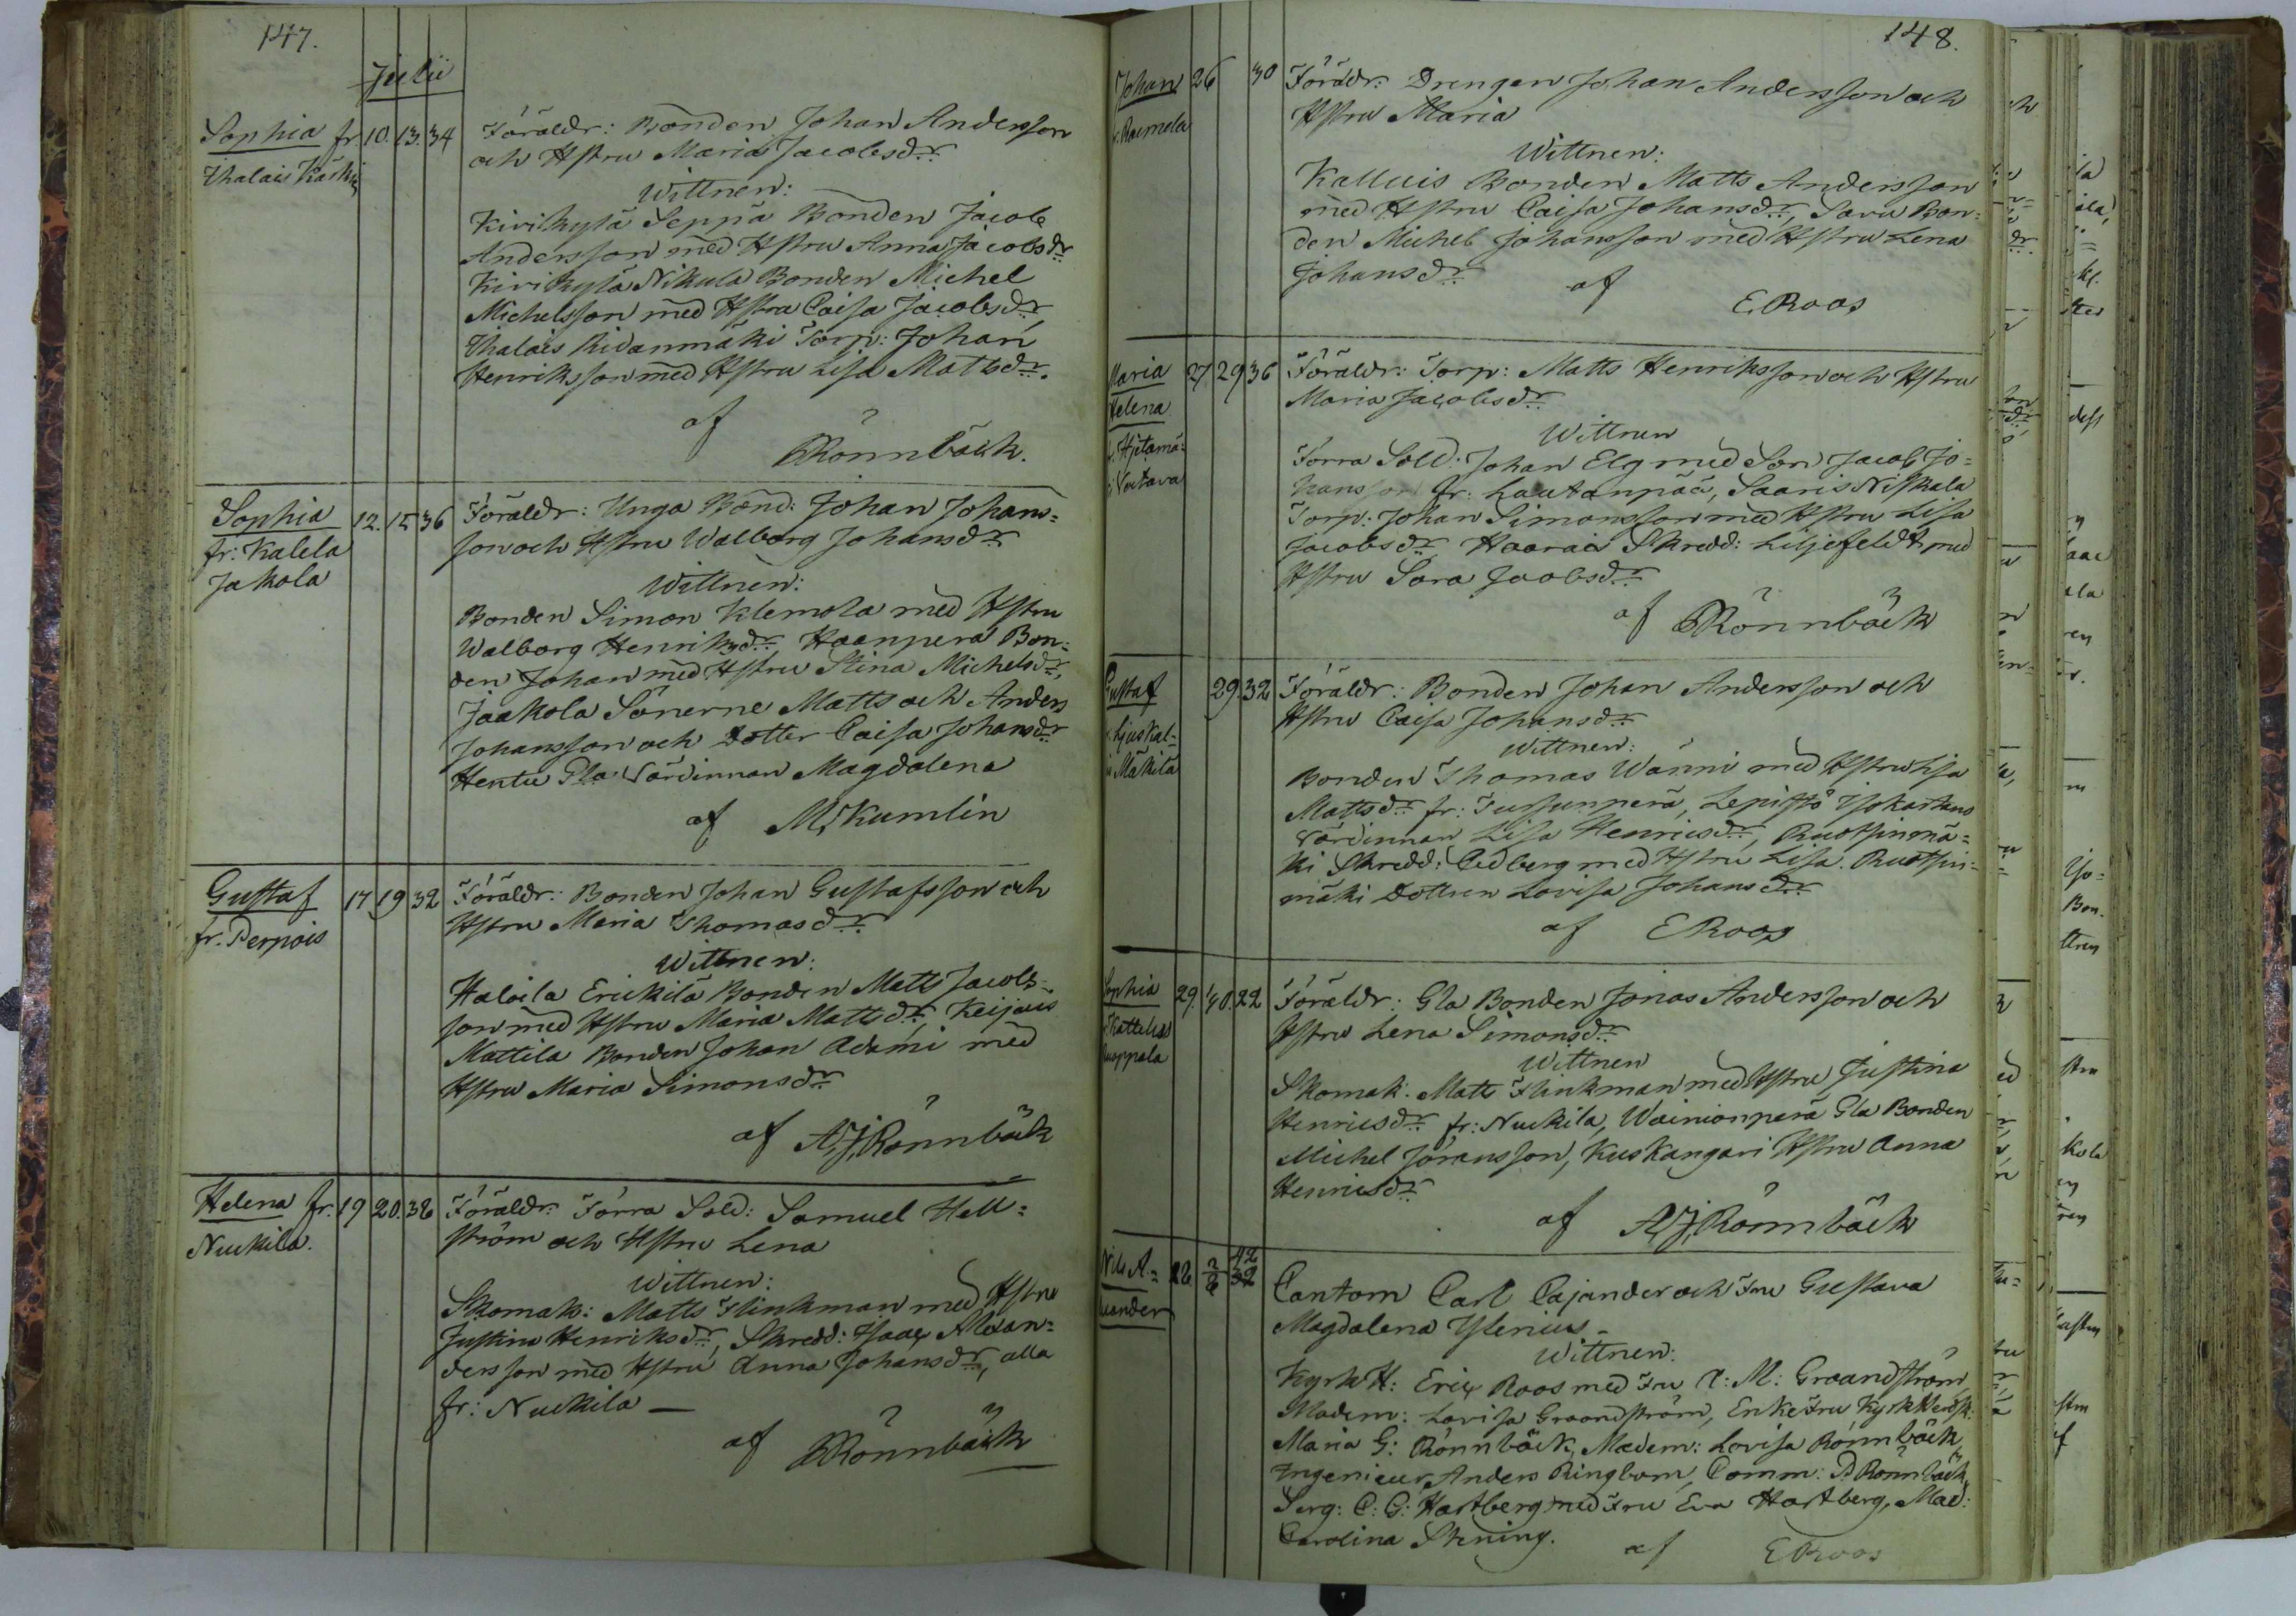 147.
Julii
Sophia fr.
Thalais Käski
10. 13. 34
Föräldr: Bonden Johan Andersson
och Hstru Maria Jacobsdr
Wittnen:
Kirikylä Seppä Bonden Jacob
Andersson med Hstru Anna Jacobsdr
Kirikylä Nikula Bonden Michel
Michelsson med Hstru Caisa Jacobsdr
Thalais Ridanmäki Torp: Johan
Henriksson med Hstru Lisa Mattsdr.
af
Rönnbäck.
Sophia
fr: Kalela
Jakola
12. 15 36
Föräldr: Unga Bond: Johan Johans=
son och Hstru Walborg Johansdr
Wittnen:
Bonden Simon Klemola med Hstru
Walborg Henriksdr Haanperä Bon=
den Johan med Hstru Stina Michelsdr,
Jaakola Sönerne Matts och Anders
Johansson och Dotter Caisa Johansdr
Hentu Gla Värdinnan Magdalena
af M. Kumlin
Gustaf
fr. Pernois
17 19 32
Föräldr: Bonden Johan Gustafsson och
Hstru Maria Thomasdr
Wittnen:
Haloila Erickilä Bonden Matts Jacobs=
son med Hstru Maria Mattsdr, Keijais
Mattila Bonden Johan Adami med
Hstru Maria Simonsdr
af A.J. Rönnbäck
Helena fr.
Nuckila.
19 20. 38
Föräldr. Förra Sold: Samuel Hell=
ström och Hstru Lena
Wittnen:
Skomak: Matts Flinkman med Hstru
Justina Henriksdr, Skredd: Isaac Alexan=
dersson med Hstru Anna Johansdr, alla
fr: Nuckila —
af Rönnbäck
148.
Johan
fr. Raumola
26 30
Föräldr: Drengen Johan Andersson och
Hstru Maria
Wittnen:
Kalluis Bonden Matts Andersson
med Hstru Caisa Johansdr, Savu Bon=
den Michel Johansson med Hstru Lena
Johansdr
af
E. Roos
Maria
Helena
27. 29 36
Föräldr: Torp: Matts Henriksson och Hstru
Maria Jacobsdr
Wittnen
Förra Sold: Johan Elg med Son Jacob Jo=
hansson fr: Lautanpää, Saaris Niskala
Torp: Johan Simonsson med Hstru Lisa
Jacobsdr Haarais Skredd: Liljefeldt med
Hstru Sara Jacobsdr
af Rönnbäck
Gustaf
Mäkilä
29 32
Föräldr: Bonden Johan Andersson och
Hstru Caisa Johansdr
Wittnen:
Bonden Thomas Wänni med Hstru Lisa
Mattsdr fr: Jussunperä, Lepistö Isokartans
Värdinnan Lisa Henricsdr, Ruotsinmä=
ki Skredd: Cedberg med Hstru Lisa. Ruotsin=
mäki Dottren Lovisa Johansdr
af E Roos
Sophia
Kattelus
29. 30. 22
Föräldr: Gla Bonden Jonas Andersson och
Hstru Lena Simonsdr
Wittnen
Skomak: Matts Flinkman med Hstru Justina
Henricsdr fr: Nuckila, Wainionperä Gla Bonden
Michel Göransson, Kuskangari Hstru Anna
Henricsdr
af A.J. Rönnbäck
Nils A=
leander
28 2/8 42 32
Cantorn Carl Cajander och Fru Gustava
Magdalena Ylenius
Wittnen:
KyrkH: Eric Roos med Fru C: M: Graandström,
Madem: Lovisa Graandström, EnkeFru KyrkHerdsk:
Maria G: Rönnbäck, Madem: Lovisa Rönnbäck
Ingenieur Anders Ringbom, Comm: P. Rönnbäck,
Serg: C: G: Hartberg med Fru Eva Hartberg, Mad:
Carolina Stening.
af E Roos